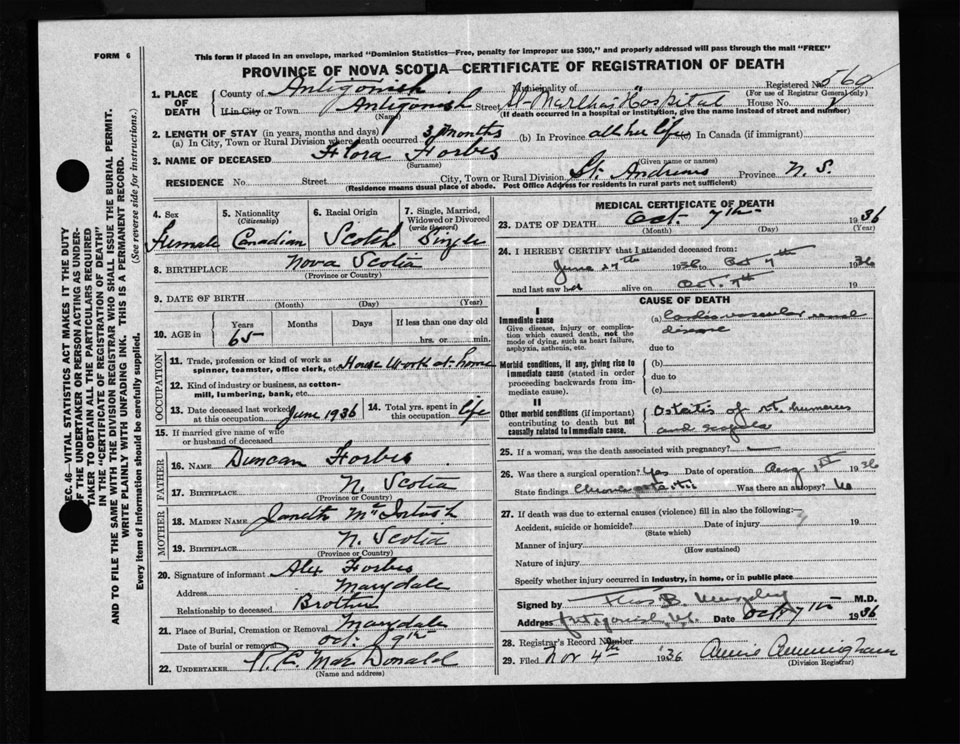 FORM 6
This form if placed in an envelope, marked "Dominion Statistics—Free, penalty for improper use $300," and properly addressed will pass through the mail "FREE"
PROVINCE OF NOVA SCOTIA—CERTIFICATE OF REGISTRATION OF DEATH
1. PLACE OF DEATH
County of Antigonish Municipality of Registered No. 569
(For use of Registrar General only)
If in City or Town Antigonish Street St. Martha's Hospital House No.
(Name) (If death occurred in a hospital or institution, give the name instead of street and number)
2. LENGTH OF STAY (in years, months and days)
(a) In City, Town or Rural Division where death occurred 3 months (b) In Province all her life (c) In Canada (if immigrant)
3. NAME OF DECEASED Flora Forbes
(Surname) (Given name or names)
RESIDENCE No. Street City, Town or Rural Division St. Andrews Province N. S.
(Residence means usual place of abode. Post Office Address for residents in rural parts not sufficient)
4. Sex
Female
5. Nationality
(Citizenship)
Canadian
6. Racial Origin
Scotch
7. Single, Married, Widowed or Divorced
(write the word)
Single
8. BIRTHPLACE Nova Scotia
(Province or Country)
9. DATE OF BIRTH
(Month) (Day) (Year)
10. AGE in Years Months Days If less than one day old
65 hrs. or min.
OCCUPATION
11. Trade, profession or kind of work as spinner, teamster, office clerk, etc. House Work at home
12. Kind of industry or business, as cotton-mill, lumbering, bank, etc.
13. Date deceased last worked at this occupation June 1936
14. Total yrs. spent in this occupation life
15. If married give name of wife or husband of deceased
FATHER
16. NAME Duncan Forbes
17. BIRTHPLACE N. Scotia
(Province or Country)
MOTHER
18. MAIDEN NAME
19. BIRTHPLACE N. Scotia
(Province or Country)
20. Signature of informant Alex Forbes
Address Marydale
Relationship to deceased Brother
21. Place of Burial, Cremation or Removal Marydale
Date of burial or removal Oct. 9th
22. UNDERTAKER MacDonald
(Name and address)
MEDICAL CERTIFICATE OF DEATH
23. DATE OF DEATH Oct. 7th 1936
(Month) (Day) (Year)
24. I HEREBY CERTIFY that I attended deceased from:
June 27th 1936 to Oct 7th 1936
and last saw her alive on Oct. 7th 19
CAUSE OF DEATH
I
Immediate cause
Give disease, injury or complication which caused death, not the mode of dying, such as heart failure, asphyxia, asthenia, etc.
(a) Cardiovascular renal disease
due to
Morbid conditions, if any, giving rise to immediate cause (stated in order proceeding backwards from immediate cause).
(b)
due to
(c)
II
Other morbid conditions (if important) contributing to death but not causally related to immediate cause.
Osteitis of rt. humerus and
25. If a woman, was the death associated with pregnancy?
26. Was there a surgical operation? Yes Date of operation Aug 1st 1936
State findings Was there an autopsy? No
27. If death was due to external causes (violence) fill in also the following:
Accident, suicide or homicide? Date of injury 19
(State which)
Manner of injury
(How sustained)
Nature of injury
Specify whether injury occurred in industry, in home, or in public place
Signed by M.D.
Address Antigonish, N.S. Date Oct 7th 1936
28. Registrar's Record Number
29. Filed Nov 4th 1936 Annie Cunningham
(Division Registrar)
SEC. 46—VITAL STATISTICS ACT MAKES IT THE DUTY
OF THE UNDERTAKER OR PERSON ACTING AS UNDERTAKER TO OBTAIN ALL THE PARTICULARS REQUIRED
IN THE "CERTIFICATE OF REGISTRATION OF DEATH"
AND TO FILE THE SAME WITH THE DIVISION REGISTRAR WHO SHALL ISSUE THE BURIAL PERMIT.
WRITE PLAINLY WITH UNFADING INK. THIS IS A PERMANENT RECORD.
Every item of information should be carefully supplied. (See reverse side for instructions.)